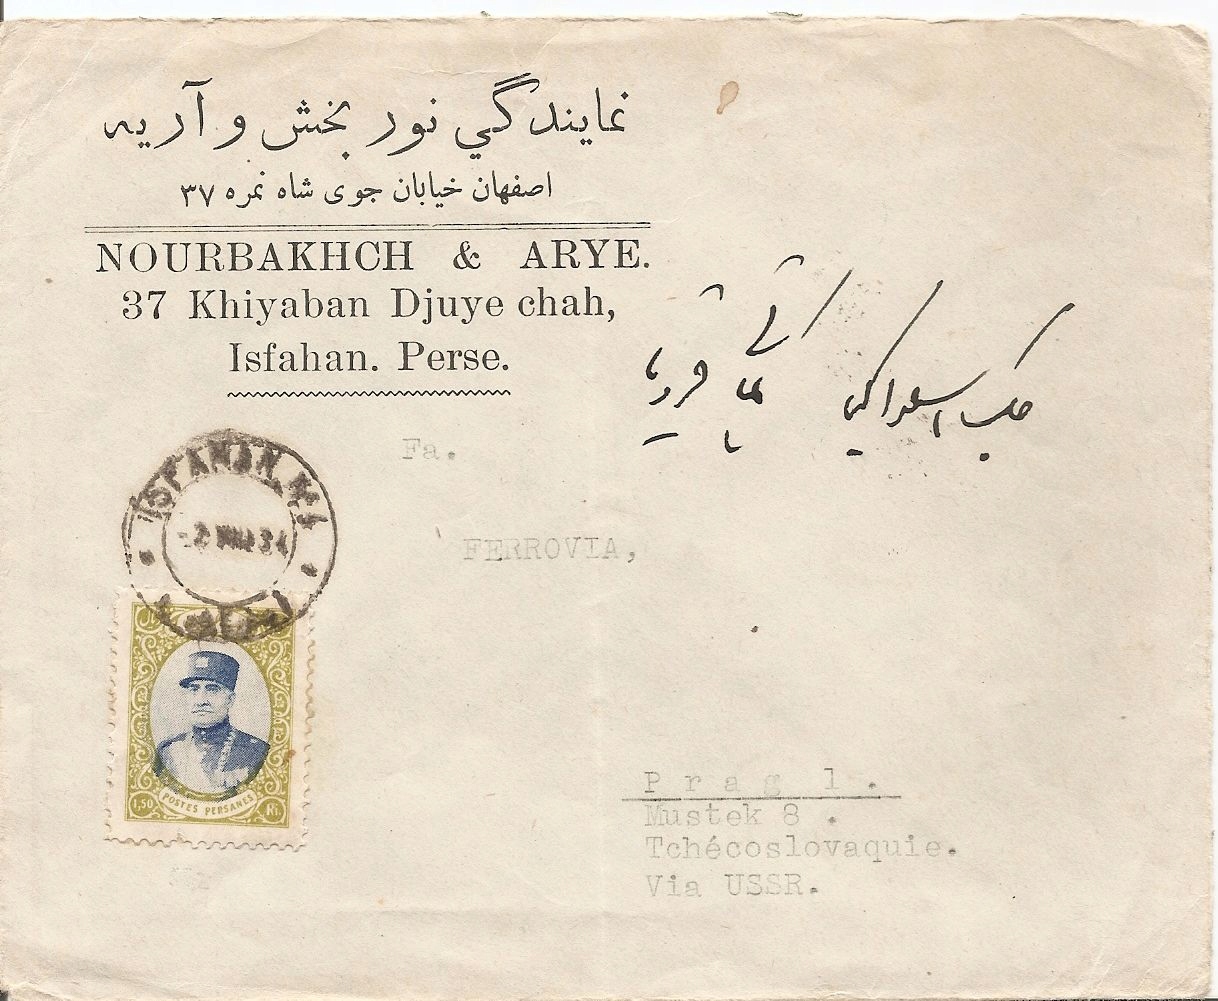 نمایندگي نور بخش و آریه
اصفهان خیابان جوی شاه نمره ۳۷
NOURBAKHCH & ARYE.
37 Khiyaban Djuye chah,
Isfahan. Perse.
Fa.
FERROVIA,
P r a g 1 .
Mustek 8 .
Tchécoslovaquie.
Via USSR.
POSTES PERSANES
1,50 Ri.